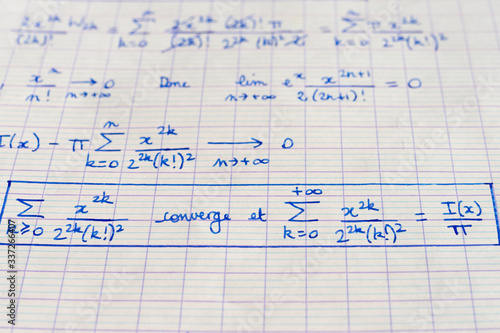 2x^{2k}/(2k)! W_{2k} = \sum_{k=0}^{n} 2x^{2k}/(2k)! (2k)! π/2^{2k}(k!)^2 2 = \sum_{k=0}^{n} π x^{2k}/2^{2k}(k!)^2
, x^n/n! → 0 n→+∞ Donc lim_{n→+∞} e^x x^{2n+1}/2(2n+1)! = 0
I(x) - π \sum_{k=0}^{n} x^{2k}/2^{2k}(k!)^2 → 0 n→+∞
\sum_{k≥0} x^{2k}/2^{2k}(k!)^2 converge et \sum_{k=0}^{+∞} x^{2k}/2^{2k}(k!)^2 = I(x)/π